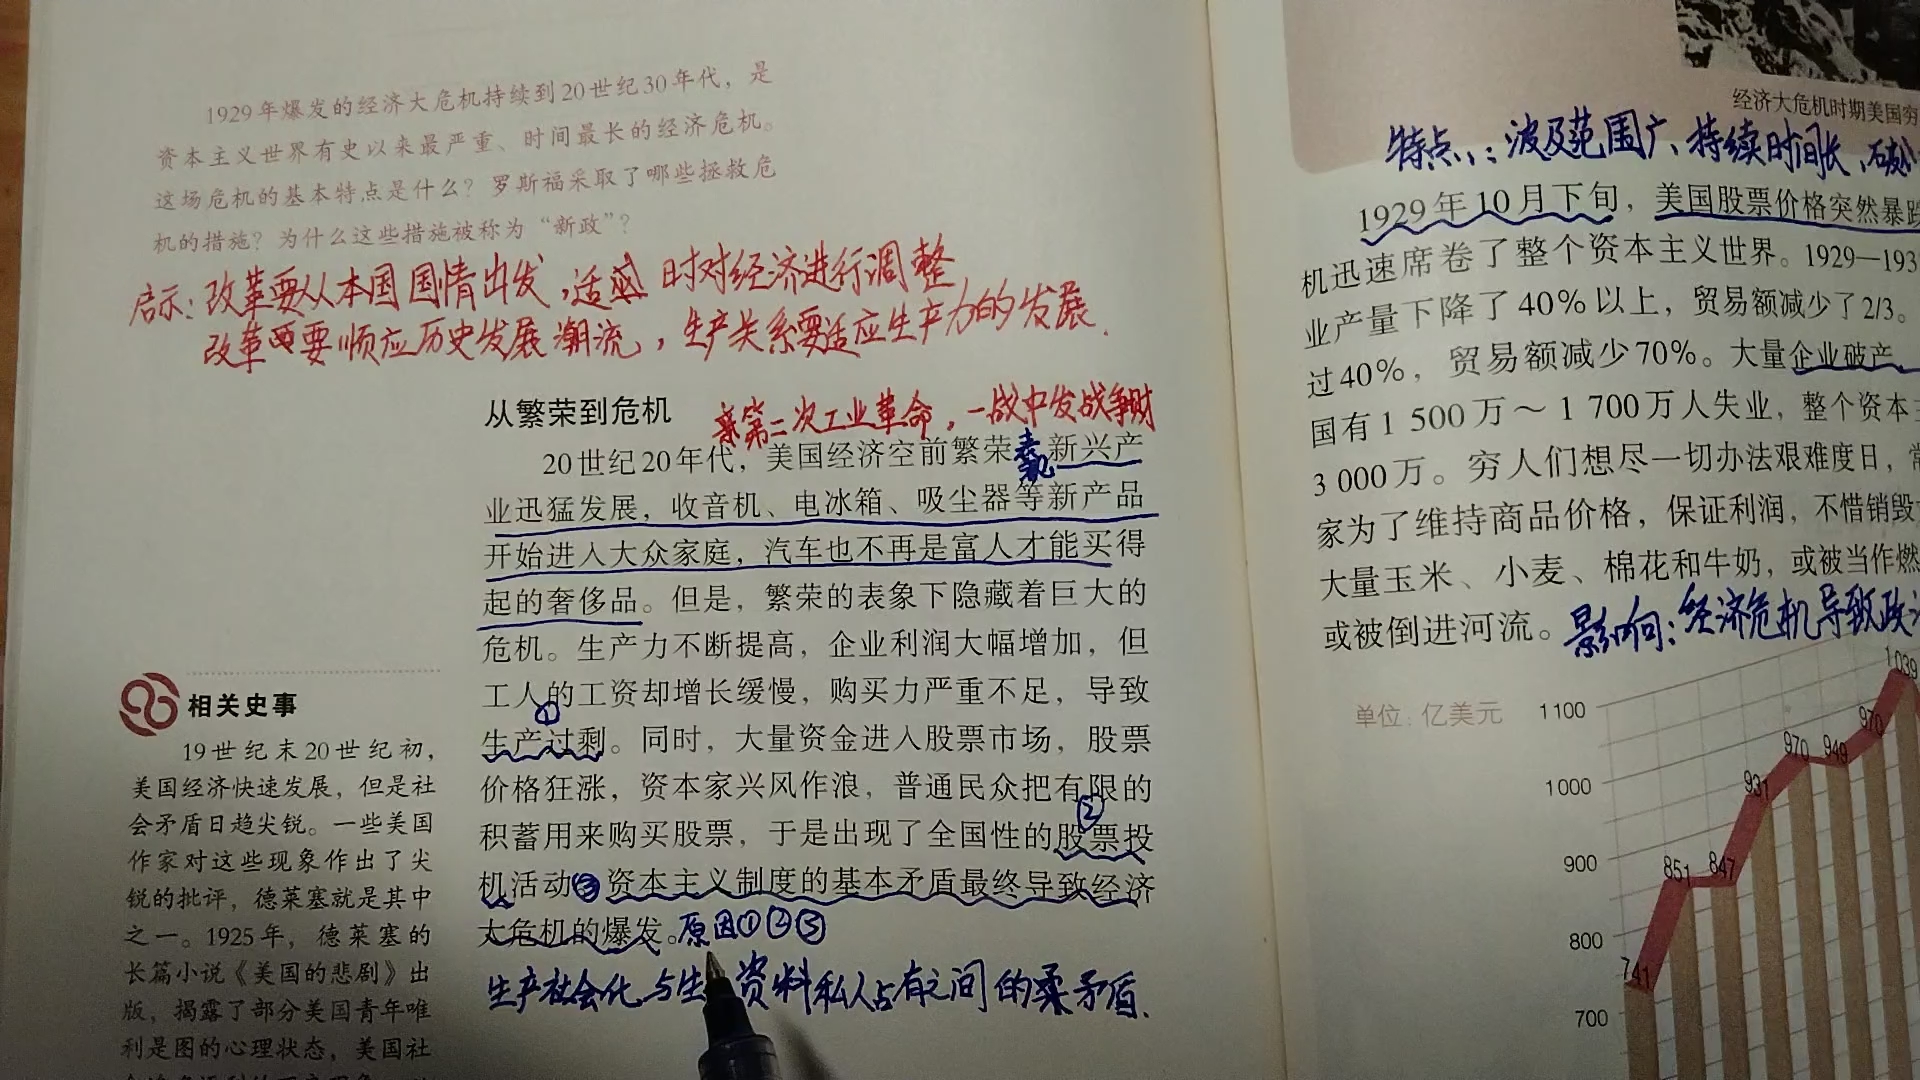 1929年爆发的经济大危机持续到20世纪30年代，是
资本主义世界有史以来最严重、时间最长的经济危机。
这场危机的基本特点是什么？罗斯福采取了哪些拯救危
机的措施？为什么这些措施被称为“新政”？
启示：改革要从本国国情出发，适 时对经济进行调整
改革要顺应历史发展潮流，生产关系要适应生产力的发展.
从繁荣到危机
第二次工业革命，一战中发战争财
20世纪20年代，美国经济空前繁荣 表现 新兴产
业迅猛发展，收音机、电冰箱、吸尘器等新产品
开始进入大众家庭，汽车也不再是富人才能买得
起的奢侈品。但是，繁荣的表象下隐藏着巨大的
危机。生产力不断提高，企业利润大幅增加，但
工人的工资却增长缓慢，购买力严重不足，导致
①
生产过剩。同时，大量资金进入股票市场，股票
价格狂涨，资本家兴风作浪，普通民众把有限的
②
积蓄用来购买股票，于是出现了全国性的股票投
机活动③资本主义制度的基本矛盾最终导致经济
大危机的爆发。原因①②③
生产社会化与生 资料私人占有之间的矛盾.
相关史事
19世纪末20世纪初，
美国经济快速发展，但是社
会矛盾日趋尖锐。一些美国
作家对这些现象作出了尖
锐的批评，德莱塞就是其中
之一。1925年，德莱塞的
长篇小说《美国的悲剧》出
版，揭露了部分美国青年唯
利是图的心理状态，美国社
经济大危机时期美国穷
特点：波及范围广、持续时间长、破
1929年10月下旬，美国股票价格突然暴跌
机迅速席卷了整个资本主义世界。1929—193
业产量下降了40%以上，贸易额减少了2/3。
过40%，贸易额减少70%。大量企业破产
国有1 500万～1 700万人失业，整个资本主
3 000万。穷人们想尽一切办法艰难度日，常
家为了维持商品价格，保证利润，不惜销毁
大量玉米、小麦、棉花和牛奶，或被当作燃
或被倒进河流。影响：经济危机导致政
单位：亿美元
1100
1000
900
800
700
741
851
847
931
970
949
970
1 039